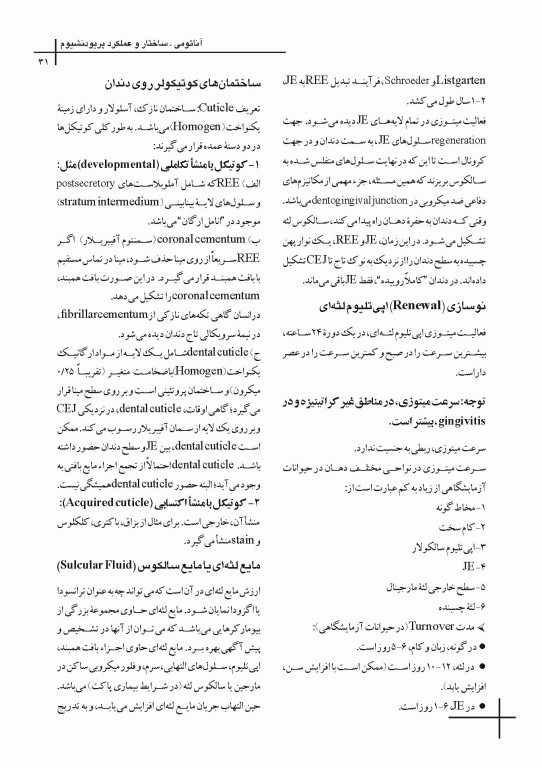 آناتومی، ساختار و عملکرد پریودنشیوم
۳۱
Listgarten و Schroeder، فرآیند تبدیل REE به JE،
۱-۲ سال طول می‌کشد.
فعالیت میتوزی در تمام لایه‌های JE دیده می‌شود. جهت
regeneration سلول‌های JE، به سمت دندان و در جهت
کرونال است تا این که در نهایت سلول‌های متفلس شده به
سالکوس بریزند که همین مسئله، جزء مهمی از مکانیزم‌های
دفاعی ضد میکروبی در dentogingival junction می‌باشد.
وقتی که دندان به حفرهٔ دهان راه پیدا می‌کند، سالکوس لثه
تشکیل می‌شود. در این زمان، JE و REE، یک نوار پهن
چسبیده به سطح دندان را از نزدیک به نوک تاج تا CEJ تشکیل
داده‌اند. در دندان "کاملاً روییده"، فقط JE باقی می‌ماند.
نوسازی (Renewal) اپی‌تلیوم لثه‌ای
فعالیت میتوزی اپی‌تلیوم لثه‌ای، در یک دورهٔ ۲۴ ساعته،
بیشترین سرعت را در صبح و کمترین سرعت را در عصر
داراست.
توجه: سرعت میتوزی، در مناطق غیر کراتینیزه و در
gingivitis، بیشتر است.
سرعت میتوزی، ربطی به جنسیت ندارد.
سرعت میتوزی در نواحی مختلف دهان در حیوانات
آزمایشگاهی از زیاد به کم عبارت است از:
۱- مخاط گونه
۲- کام سخت
۳- اپی‌تلیوم سالکولار
۴- JE
۵- سطح خارجی لثهٔ مارجینال
۶- لثهٔ چسبنده
➢ مدت Turnover (در حیوانات آزمایشگاهی):
● در گونه، زبان و کام، ۶-۵ روز است.
● در لثه، ۱۲-۱۰ روز است (ممکن است با افزایش سن،
افزایش یابد).
● در JE، ۶-۱ روز است.
ساختمان‌های کوتیکولر روی دندان
تعریف Cuticle: ساختمان نازک، آسلولار و دارای زمینهٔ
یکنواخت (Homogen) می‌باشد. به طور کلی کوتیکل‌ها
در دو دستهٔ عمده قرار می‌گیرند:
۱- کوتیکل با منشأ تکاملی (developmental) مثل:
الف) REE که شامل آملوبلاست‌های postsecretory
و سلول‌های لایهٔ بینابینی (stratum intermedium)
موجود در "انامل ارگان" می‌باشد.
ب) coronal cementum (سمنتوم آفیبریلار) اگر
REE سریعاً از روی مینا حذف شود، مینا در تماس مستقیم
با بافت همبند قرار می‌گیرد. در این صورت بافت همبند،
coronal cementum را تشکیل می‌دهد.
در انسان گاهی تکه‌های نازکی از fibrillar cementum،
در نیمهٔ سرویکالی تاج دندان دیده می‌شود.
ج) dental cuticle شامل یک لایه از مواد ارگانیک
یکنواخت (Homogen) با ضخامت متغیر (تقریباً ۰/۲۵
میکرون) و ساختمان پروتئینی است و بر روی سطح مینا قرار
می‌گیرد؛ گاهی اوقات، dental cuticle، در نزدیکی CEJ
و بر روی یک لایه از سمان آفیبریلار رسوب می‌کند. ممکن
است dental cuticle، بین JE و سطح دندان حضور داشته
باشد. dental cuticle احتمالاً از تجمع اجزاء مایع بافتی به
وجود می‌آید؛ البته حضور dental cuticle همیشگی نیست.
۲- کوتیکل با منشأ اکتسابی (Acquired cuticle):
منشأ آن، خارجی است. برای مثال از بزاق، باکتری، کلکلوس
و stain منشأ می‌گیرد.
مایع لثه‌ای یا مایع سالکوس (Sulcular Fluid)
ارزش مایع لثه‌ای در آن است که می‌تواند چه به عنوان ترانسودا
یا اگزودا نمایان شود. مایع لثه‌ای حاوی مجموعهٔ بزرگی از
بیومارکرهایی می‌باشد که می‌توان از آنها در تشخیص و
پیش آگهی بهره برد. مایع لثه‌ای حاوی اجزاء بافت همبند،
اپی‌تلیوم، سلول‌های التهابی، سرم، و فلور میکروبی ساکن در
مارجین یا سالکوس لثه (در شرایط بیماری پاکت) می‌باشد.
حین التهاب جریان مایع لثه‌ای افزایش می‌یابد، و به تدریج